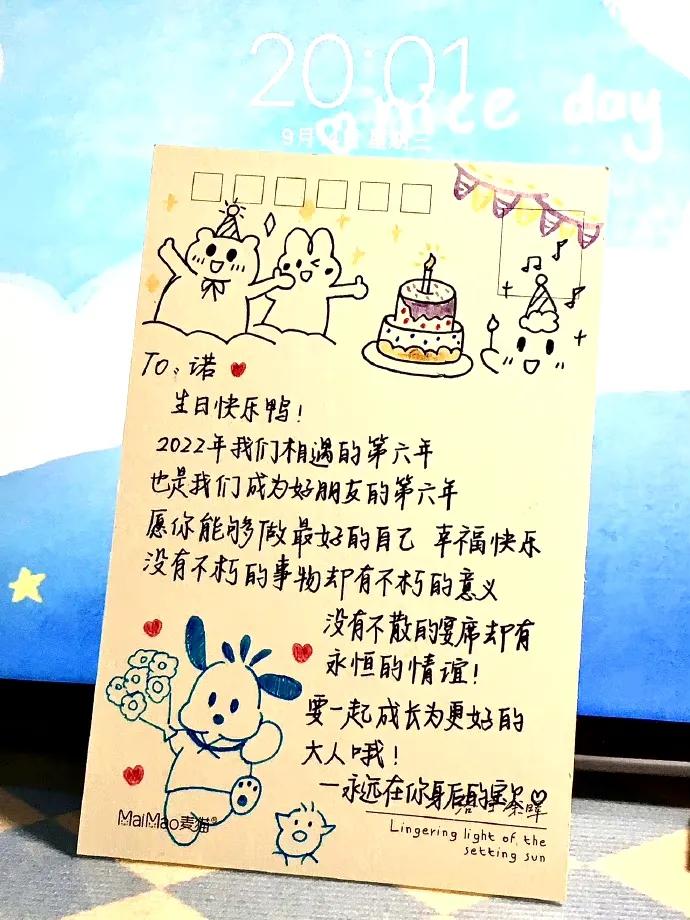 20:01
nice day
9月 星期三
To: 诺
生日快乐鸭！
2022年我们相遇的第六年
也是我们成为好朋友的第六年
愿你能够做最好的自己 幸福快乐
没有不朽的事物却有不朽的意义
没有不散的宴席却有
永恒的情谊！
要一起成长为更好的
大人哦！
—永远在你身后的宝贝
余晖
Lingering light of the
setting sun
MaiMao麦猫®